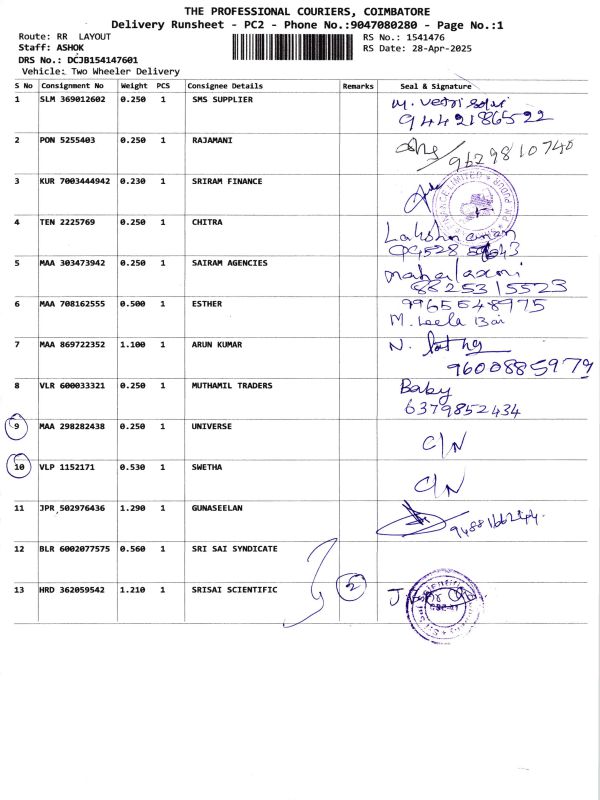 THE PROFESSIONAL COURIERS, COIMBATORE
Delivery Runsheet - PC2 - Phone No.:9047080280 - Page No.:1
Route: RR LAYOUT RS No.: 1541476
Staff: ASHOK RS Date: 28-Apr-2025
DRS No.: DCJB154147601
Vehicle: Two Wheeler Delivery
S No Consignment No Weight PCS Consignee Details Remarks Seal & Signature
1 SLM 369012602 0.250 1 SMS SUPPLIER
9442186522
2 PON 5255403 0.250 1 RAJAMANI 9629810740
3 KUR 7003444942 0.230 1 SRIRAM FINANCE
4 TEN 2225769 0.250 1 CHITRA
5 MAA 303473942 0.250 1 SAIRAM AGENCIES
8825315523
6 MAA 708162555 0.500 1 ESTHER 9965548975
M. Leela Bai
7 MAA 869722352 1.100 1 ARUN KUMAR N.
9600885979
8 VLR 600033321 0.250 1 MUTHAMIL TRADERS Baby
6379852434
9 MAA 298282438 0.250 1 UNIVERSE C/N
10 VLP 1152171 0.530 1 SWETHA C/N
11 JPR 502976436 1.290 1 GUNASEELAN
12 BLR 6002077575 0.560 1 SRI SAI SYNDICATE
13 HRD 362059542 1.210 1 SRISAI SCIENTIFIC 2